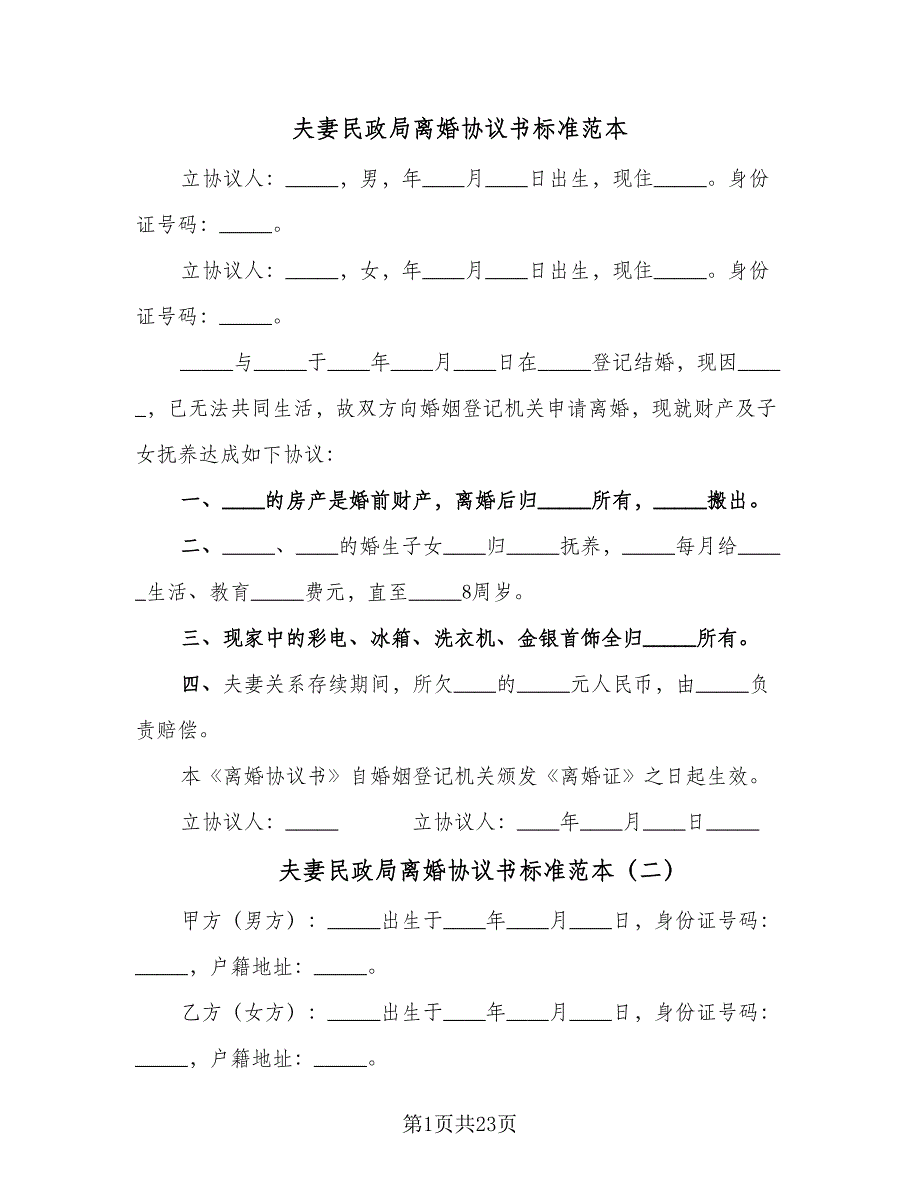 夫妻民政局离婚协议书标准范本
立协议人：_____，男，年____月____日出生，现住_____。身份
证号码：_____。
立协议人：_____，女，年____月____日出生，现住_____。身份
证号码：_____。
_____与_____于____年____月____日在_____登记结婚，现因____
_，已无法共同生活，故双方向婚姻登记机关申请离婚，现就财产及子
女抚养达成如下协议：
一、____的房产是婚前财产，离婚后归_____所有，_____搬出。
二、_____、____的婚生子女____归_____抚养，_____每月给____
_生活、教育_____费元，直至_____8周岁。
三、现家中的彩电、冰箱、洗衣机、金银首饰全归_____所有。
四、夫妻关系存续期间，所欠____的_____元人民币，由_____负
责赔偿。
本《离婚协议书》自婚姻登记机关颁发《离婚证》之日起生效。
立协议人：_____ 立协议人：____年____月____日_____
夫妻民政局离婚协议书标准范本（二）
甲方（男方）：_____出生于____年____月____日，身份证号码：
_____，户籍地址：_____。
乙方（女方）：_____出生于____年____月____日，身份证号码：
_____，户籍地址：_____。
第1页共23页